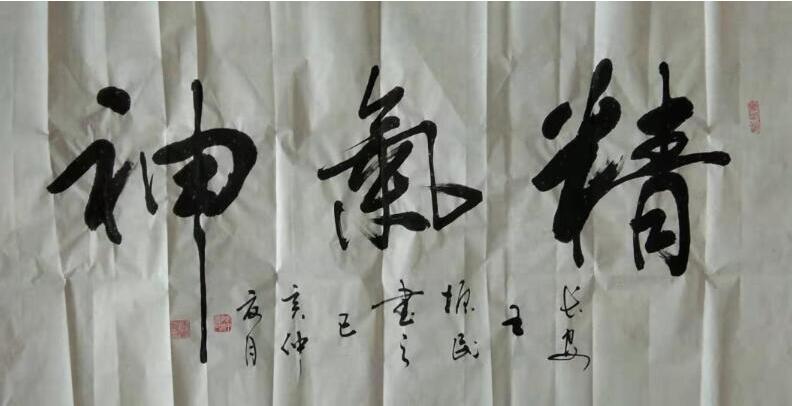 精氣神
长安
王
振民
書之
己
亥仲
夏月